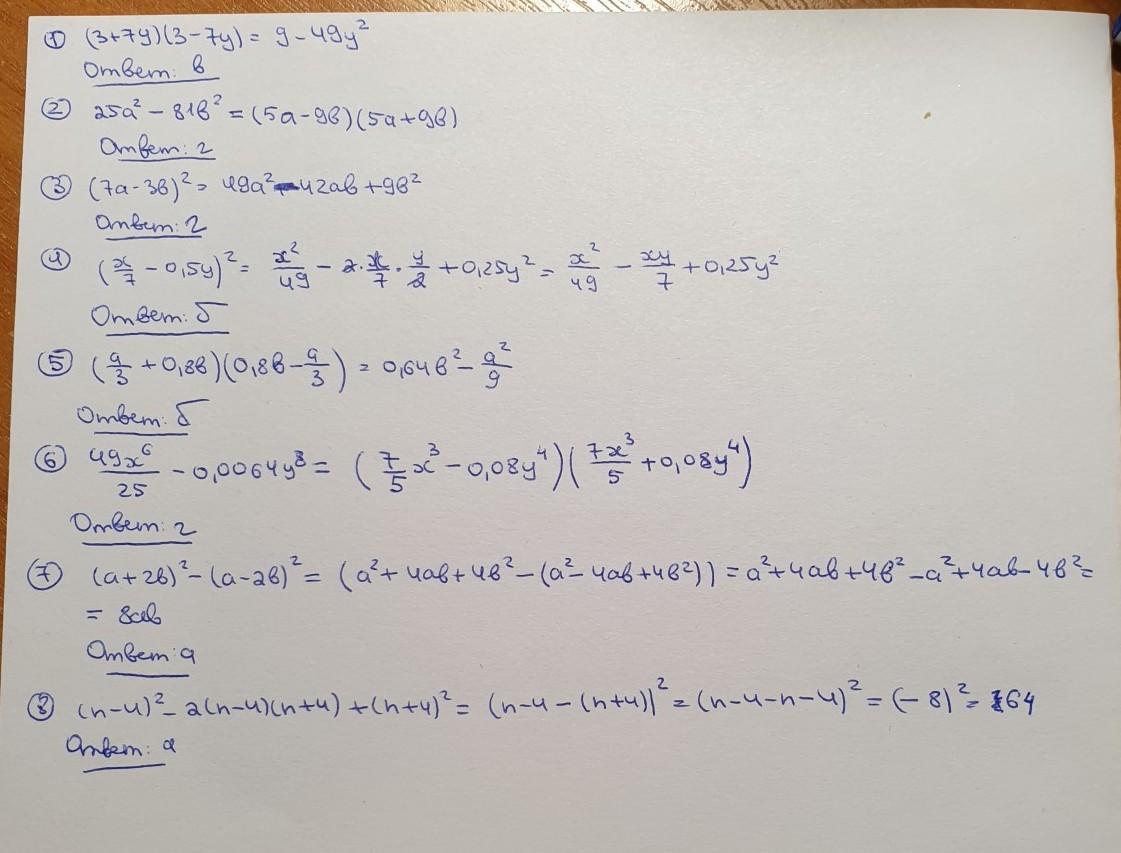 ① (3+7y)(3-7y) = 9 - 49y²
Ответ: в
② 25a² - 81b² = (5a-9b)(5a+9b)
Ответ: г
③ (7a-3b)² = 49a² - 42ab + 9b²
Ответ: г
④ (x/7 - 0,5y)² = x²/49 - 2·x/7·y/2 + 0,25y² = x²/49 - xy/7 + 0,25y²
Ответ: б
⑤ (a/3 + 0,8b)(0,8b - a/3) = 0,64b² - a²/9
Ответ: б
⑥ 49x⁶/25 - 0,0064y⁸ = (7/5 x³ - 0,08y⁴)(7x³/5 + 0,08y⁴)
Ответ: г
⑦ (a+2b)² - (a-2b)² = (a² + 4ab + 4b² - (a² - 4ab + 4b²)) = a² + 4ab + 4b² - a² + 4ab - 4b² =
= 8ab
Ответ: а
⑧ (n-4)² - 2(n-4)(n+4) + (n+4)² = (n-4-(n+4))² = (n-4-n-4)² = (-8)² = 64
Ответ: а